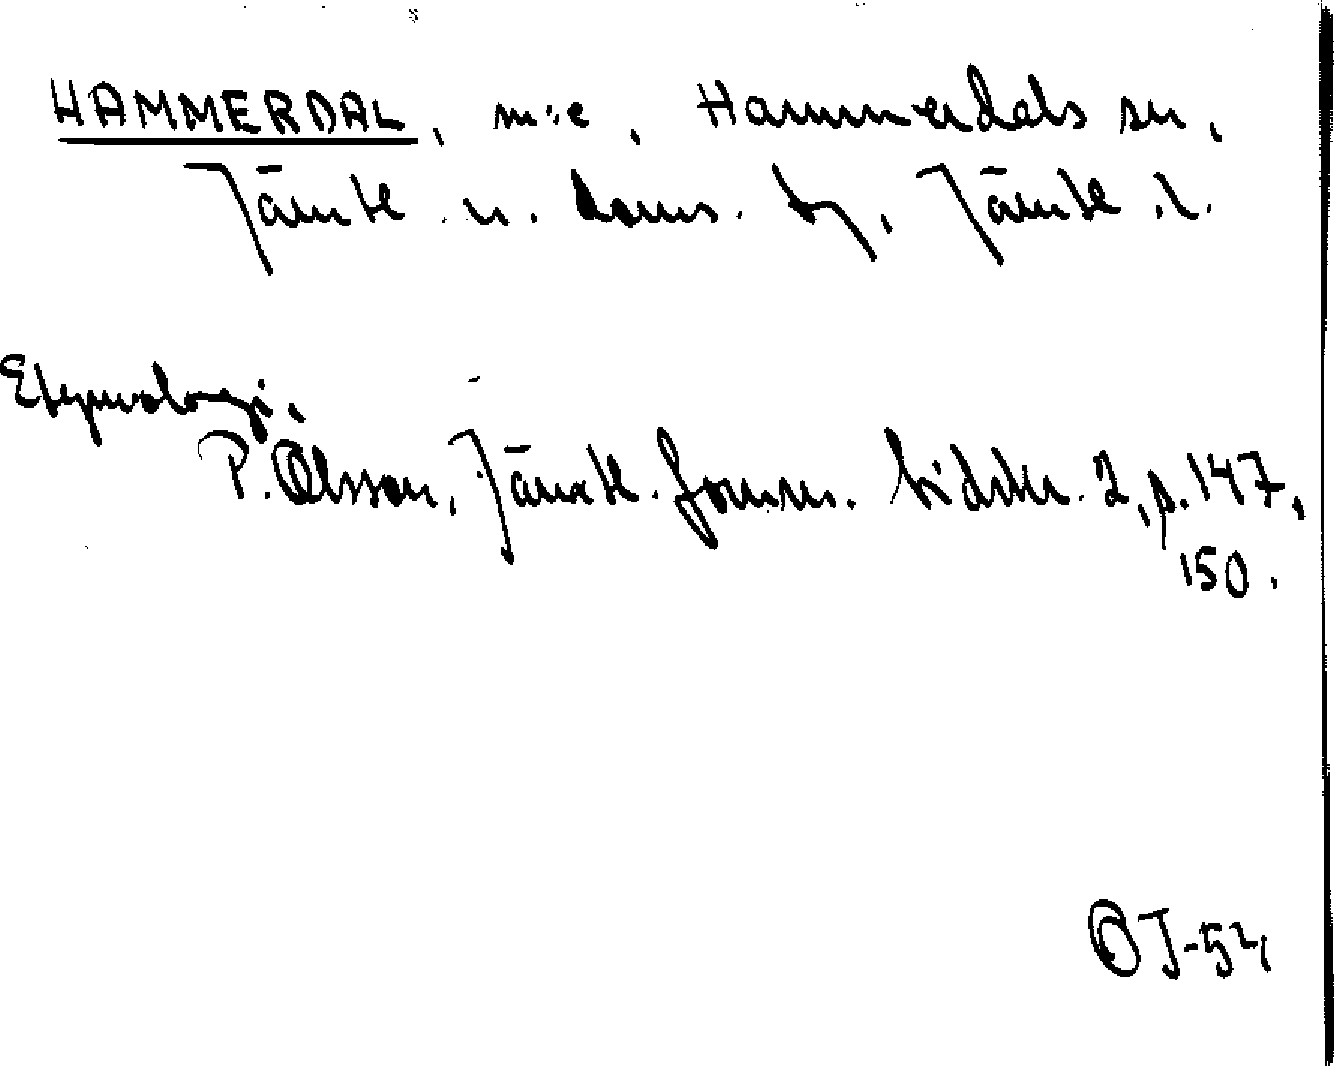 HAMMERDAL, m:e, Hammerdals sn,
Jämtl. n. doms. tg, Jämtl. l.
Etymologi.
P. Olsson, Jämtl. fornm. tidskr. 2, p. 147,
150.
OJ-54